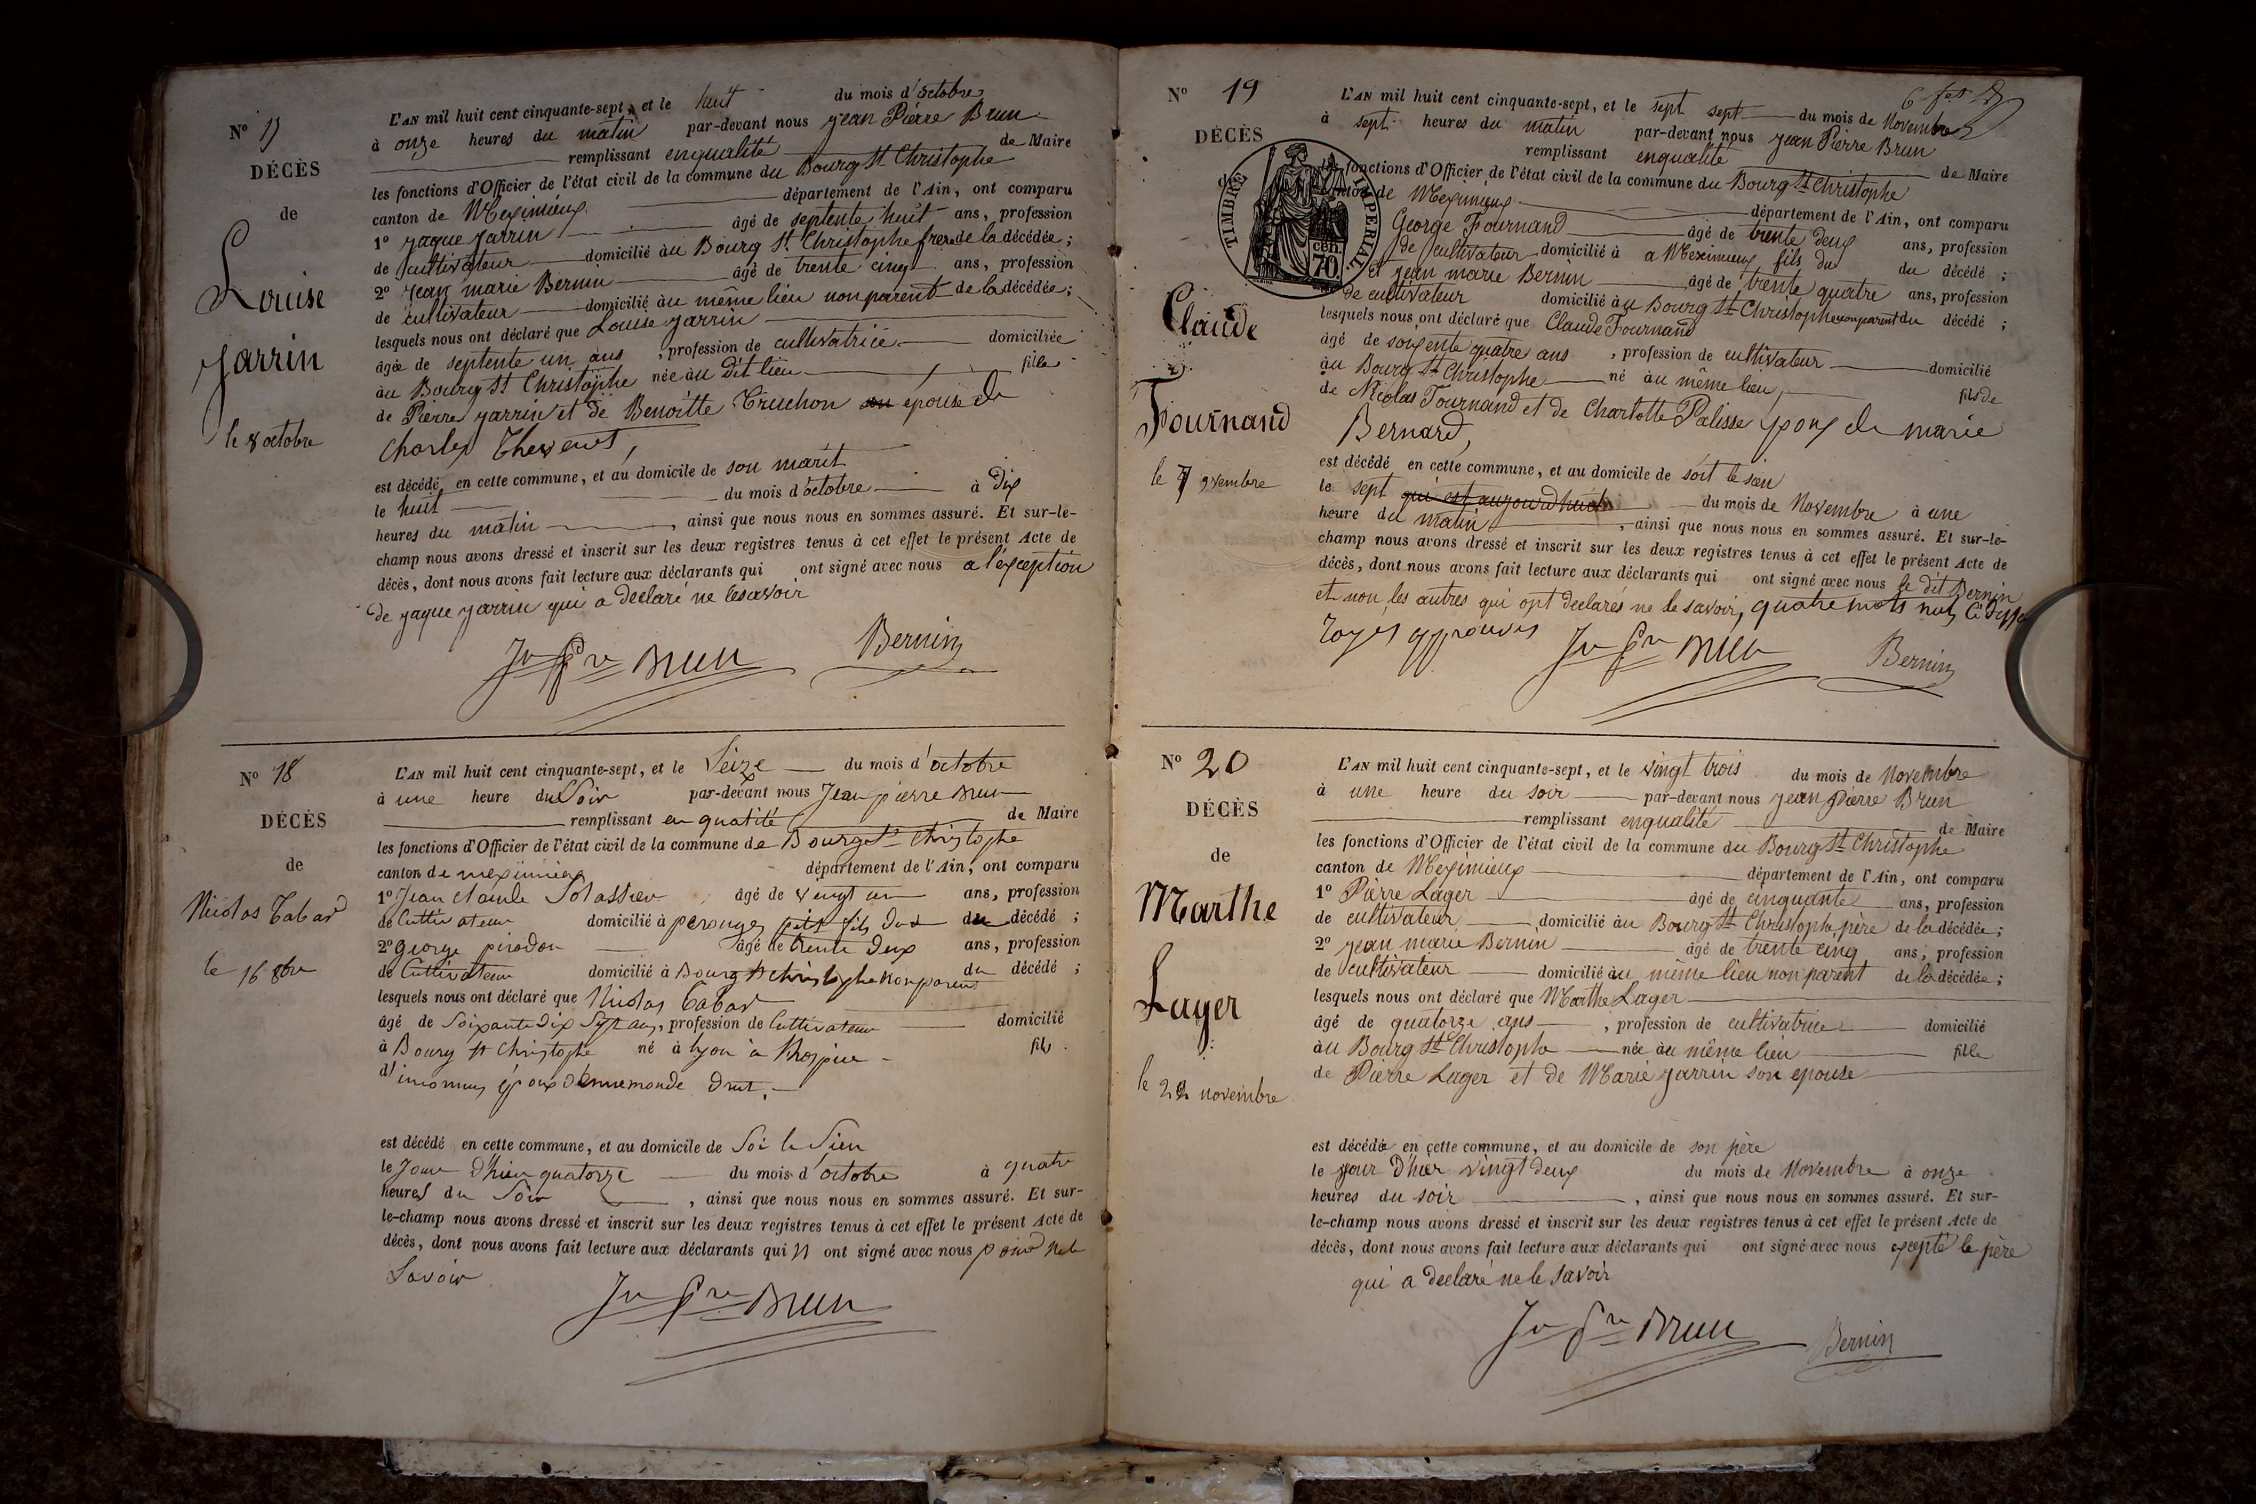 N° 17
DÉCÈS
de
Louise
Jarrin
le 8 octobre
L'AN mil huit cent cinquante-sept, et le huit du mois d'octobre
à onze heures du matin par-devant nous jean Piérre Brun
remplissant enqualité de Maire
les fonctions d'Officier de l'état civil de la commune du Bourg St Christophe
canton de Meximieux département de l'Ain, ont comparu
1° jaque jarrin âgé de septente huit ans, profession
de cultivateur domicilié àu Bourg St Christophe frere de la décédée;
2° jean marie Bernin âgé de trente cinq ans, profession
de cultivateur domicilié àu même lieu non parent de la décédée;
lesquels nous ont déclaré que Louise jarrin
âgée de septente un ans, profession de cultivatrice domiciliée
àu Bourg St Christophe née àu dit lieu fille
de Pierre jarrin et de Benoitte Truchon épouse de
Charles Thevenet,
est décédé en cette commune, et au domicile de son marit
le huit du mois d'octobre à dix
heures du matin, ainsi que nous nous en sommes assuré. Et sur-le-
champ nous avons dressé et inscrit sur les deux registres tenus à cet effet le présent Acte de
décès, dont nous avons fait lecture aux déclarants qui ont signé avec nous a l'exception
de jaque jarrin qui a declaré ne lesavoir
Jn Pre Brun Bernin
N° 18
DÉCÈS
de
Nicolas Tabard
le 16 8bre
L'AN mil huit cent cinquante-sept, et le Seize du mois d'octobre
à une heure du Soir par-devant nous Jean pierre Brun
remplissant en qualité de Maire
les fonctions d'Officier de l'état civil de la commune de Bourg St Christophe
canton de meximieux département de l'Ain, ont comparu
1° Jean claude âgé de vingt un ans, profession
de Cultivateur domicilié à perouges petit fils du décédé;
2° george pirodon âgé de trente deux ans, profession
de Cultivateur domicilié à Bourg St christophe non parent du décédé;
lesquels nous ont déclaré que Nicolas Tabard
âgé de Soixante dix Sept ans, profession de Cultivateur domicilié
à Bourg St Christophe né à lyon à lhospice fils
d'inconnus époux d'ennemonde
est décédé en cette commune, et au domicile de Soi le Sien
le Jour d'hier quatorze du mois d'octobre à quatre
heures du Soir, ainsi que nous nous en sommes assuré. Et sur-
le-champ nous avons dressé et inscrit sur les deux registres tenus à cet effet le présent Acte de
décès, dont nous avons fait lecture aux déclarants qui n ont signé avec nous
Savoir
Jn Pre Brun
N° 19
DÉCÈS
de
TIMBRE IMPERIAL
cen. 70
Claude
Fournand
le 7 9vembre
L'AN mil huit cent cinquante-sept, et le sept sept du mois de Novembre
à sept heures du matin par-devant nous jean Pierre Brun
remplissant enqualité de Maire
fonctions d'Officier de l'état civil de la commune du Bourg St Christophe
canton de Meximieux département de l'Ain, ont comparu
George Fournand âgé de trente deux ans, profession
de cultivateur domicilié à a Meximieux fils du du décédé;
et jean marie Bernin âgé de trente quatre ans, profession
de cultivateur domicilié àu Bourg St Christophe nonparent du décédé;
lesquels nous ont déclaré que Claude Fournand
âgé de soixente quatre ans, profession de cultivateur domicilié
àu Bourg St Christophe né àu même lieu, fils de
de Nicolas Fournand et de Charlotte Palisse époux de marie
Bernard,
est décédé en cette commune, et au domicile de soit le sien
le sept qui est aujourdhuit du mois de Novembre à une
heure du matin, ainsi que nous nous en sommes assuré. Et sur-le-
champ nous avons dressé et inscrit sur les deux registres tenus à cet effet le présent Acte de
décès, dont nous avons fait lecture aux déclarants qui ont signé avec nous le dit Bernin
et non les autres qui ont declarés ne le savoir, quatre mots nuls
rayés approuvés
Jn Pre Brun Bernin
N° 20
DÉCÈS
de
Marthe
Layer
le 22 novembre
L'AN mil huit cent cinquante-sept, et le vingt trois du mois de Novembre
à une heure du soir par-devant nous jean Pierre Brun
remplissant enqualité de Maire
les fonctions d'Officier de l'état civil de la commune du Bourg St Christophe
canton de Meximieux département de l'Ain, ont comparu
1° Pierre Layer âgé de cinquante ans, profession
de cultivateur domicilié àu Bourg St Christophe père de la décédée;
2° jean marie Bernin âgé de trente cinq ans, profession
de cultivateur domicilié àu même lieu non parent de la décédée;
lesquels nous ont déclaré que Marthe Layer
âgé de quatorze ans, profession de cultivatrice domicilié
àu Bourg St Christophe née àu même lieu fille
de Pierre Layer et de Marie jarrin son epouse
est décédée en cette commune, et au domicile de son père
le jour d'hier vingt deux du mois de Novembre à onze
heures du soir, ainsi que nous nous en sommes assuré. Et sur-
le-champ nous avons dressé et inscrit sur les deux registres tenus à cet effet le présent Acte de
décès, dont nous avons fait lecture aux déclarants qui ont signé avec nous excepté le père
qui a declaré ne le savoir
Jn Pre Brun Bernin